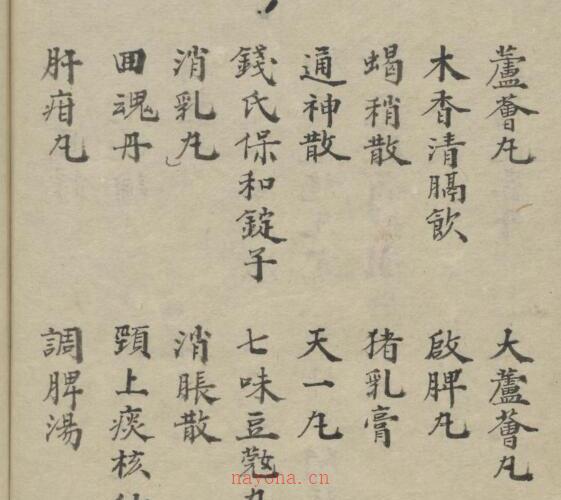 蘆薈丸
大蘆薈丸
木香清膈飲
啟脾丸
蝎稍散
猪乳膏
通神散
天一丸
錢氏保和錠子
七味豆蔻丸
消乳丸
消脹散
回魂丹
頸上痰核
肝疳丸
調脾湯
nayona.cn